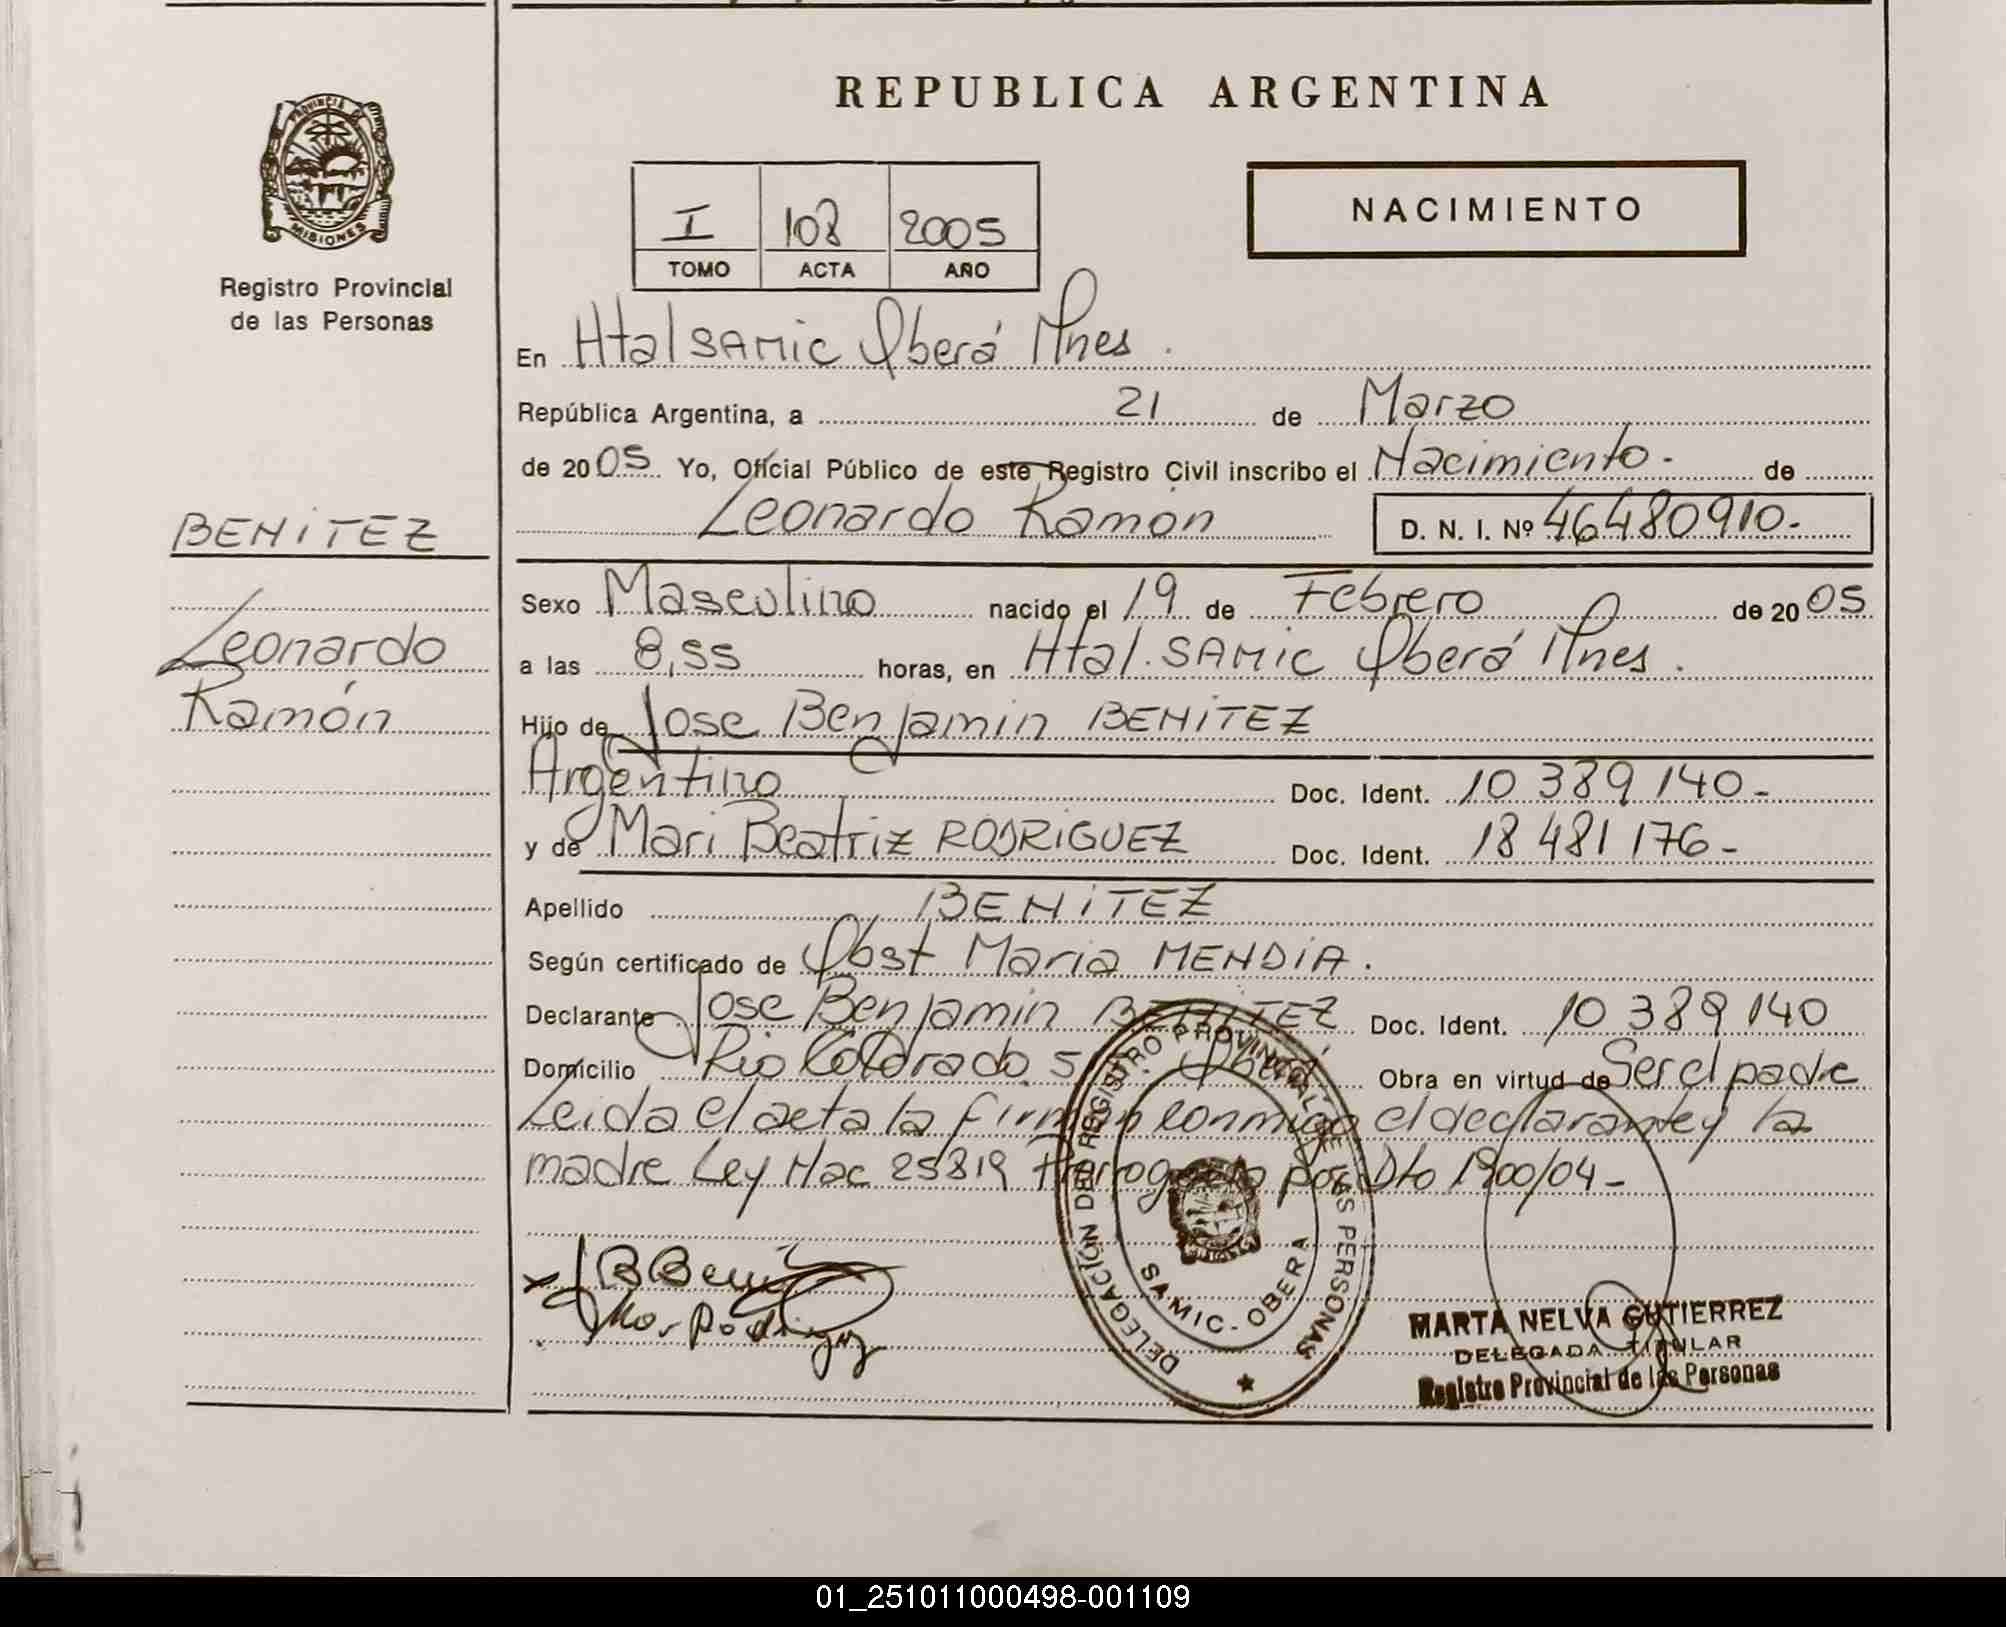 REPUBLICA ARGENTINA
PROVINCIA DE
MISIONES
Registro Provincial
de las Personas
I 108 2005
TOMO ACTA AÑO
NACIMIENTO
En Htal SAMIC Oberá Mnes.
República Argentina, a 21 de Marzo
de 2005 Yo, Oficial Público de este Registro Civil inscribo el Nacimiento - de
Leonardo Ramón D. N. I. Nº 46480910-
BENITEZ
Leonardo
Ramón
Sexo Masculino nacido el 19 de Febrero de 2005
a las 8,55 horas, en Htal. SAMIC Oberá Mnes.
Hijo de Jose Benjamin BENITEZ
Argentino Doc. Ident. 10 389 140-
y de Mari Beatriz RODRIGUEZ Doc. Ident. 18 481 176-
Apellido BENITEZ
Según certificado de Obst Maria MENDIA.
Declarante Jose Benjamin BENITEZ Doc. Ident. 10 389 140
Domicilio Rio Colorado Oberá Obra en virtud de Ser el padre
Leida el acta la firman conmigo el declarante y la
madre Ley Nac 25819 Prorrogada por Dto 1900/04-
DELEGACIÓN DEL REGISTRO PROVINCIAL DE LAS PERSONAS
SAMIC - OBERA
MARTA NELVA GUTIERREZ
DELEGADA TITULAR
Registro Provincial de las Personas
01_251011000498-001109